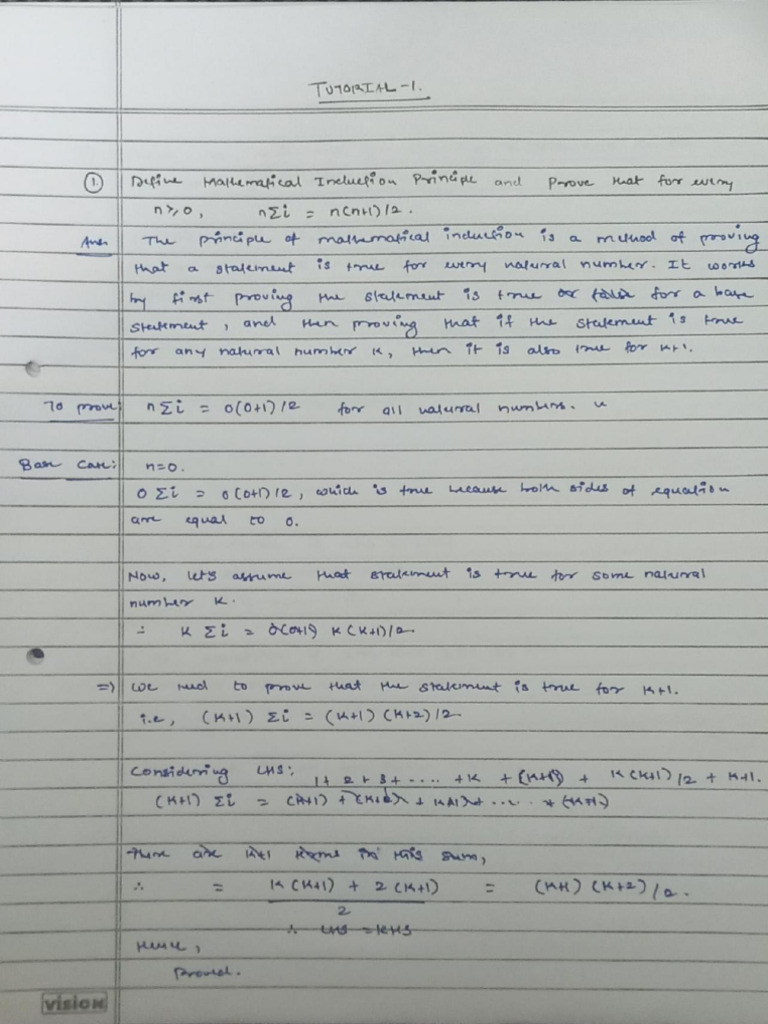 TUTORIAL-1.
① Define Mathematical Induction Principle and Prove that for every
n≥0, nΣi = n(n+1)/2.
Ans The principle of mathematical induction is a method of proving
that a statement is true for every natural number. It works
by first proving the statement is true for a base
statement, and then proving that if the statement is true
for any natural number k, then it is also true for k+1.
To prove: nΣi = 0(0+1)/2 for all natural numbers. n
Base Case: n=0.
0 Σi = 0(0+1)/2, which is true because both sides of equation
are equal to 0.
Now, let's assume that statement is true for some natural
number k.
∴ k Σi = k(k+1)/2
=) we need to prove that the statement is true for k+1.
i.e, (k+1) Σi = (k+1)(k+2)/2
Considering LHS: 1+2+3+....+k + (k+1) + k(k+1)/2 + k+1.
(k+1) Σi =
There are k+1 terms in this sum,
∴ = k(k+1) + 2(k+1) = (k+1)(k+2)/2.
2
∴ LHS = RHS
Hence,
Proved.
vision